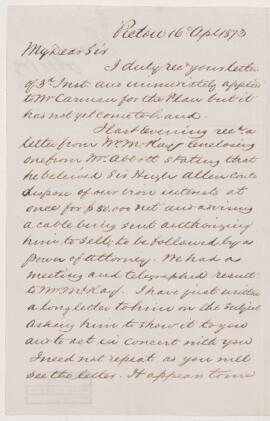 Pictou 16th Apl 1873
My Dear Sir
I duly recd your letter
of 3rd Inst and immediately applied
to Mr Carman for the Plan but it
has not yet come to hand.
I last evening recd a
letter from Mr McKay enclosing
one from Mr Abbott stating that
he believed Sir Hugh Allan could
dispose of our iron interests at
once for $50.000 net and advising
a cable being sent authorizing
him to sell, to be followed by a
power of attorney. We had a
meeting and telegraphed result
to Mr McKay. I have just written
a long letter to him on the subject
asking him to show it to you
and to act in concert with you
I need not repeat as you will
see the letter. It appears to me